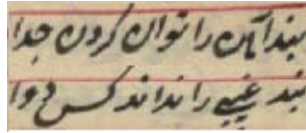 بند آهن را توان کردن جدا
بند غیبی را نداند کس دوا